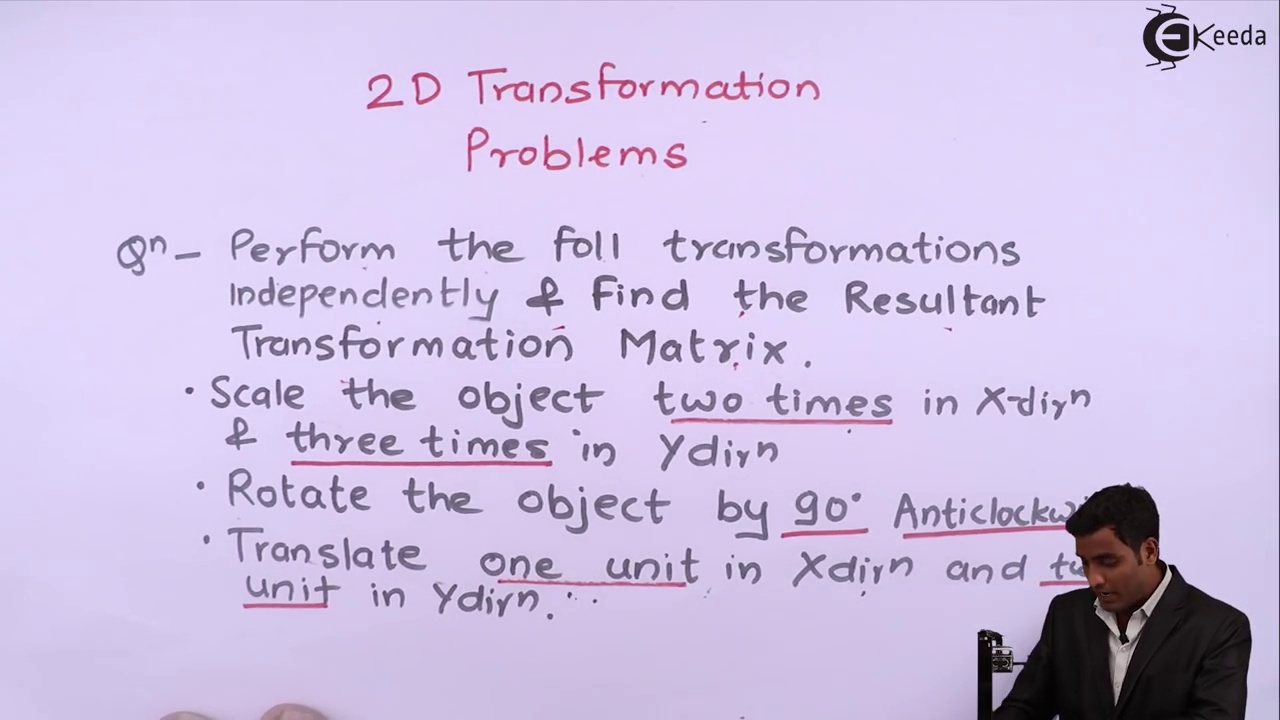 Keeda
2D Transformation
Problems
Qn – Perform the foll transformations
independently & Find the Resultant
Transformation Matrix.
· Scale the object two times in X-dirn
& three times in Ydirn
· Rotate the object by 90°
· Translate one unit in Xdirn and
unit in Ydirn.